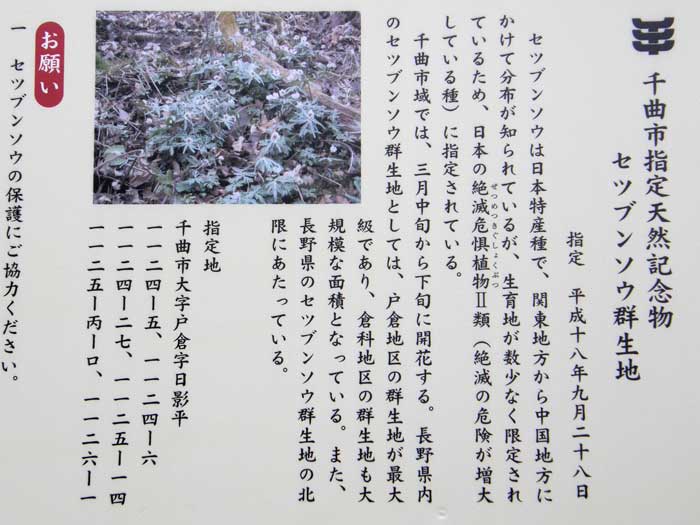 千曲市指定天然記念物
セツブンソウ群生地
指定　平成十八年九月二十八日
セツブンソウは日本特産種で、関東地方から中国地方に
かけて分布が知られているが、生育地が数少なく限定され
ているため、日本の絶滅危惧植物Ⅱ類（絶滅の危険が増大
ぜつめつきぐしょくぶつ
している種）に指定されている。
千曲市域では、三月中旬から下旬に開花する。長野県内
のセツブンソウ群生地としては、戸倉地区の群生地が最大
級であり、倉科地区の群生地も大
規模な面積となっている。また、
長野県のセツブンソウ群生地の北
限にあたっている。
指定地
千曲市大字戸倉字日影平
一一二四ー五、一一二四ー六
一一二四ー二七、一一二五ー一四
一一二五ー丙ーロ、一一二六ー一
お願い
一　セツブンソウの保護にご協力ください。